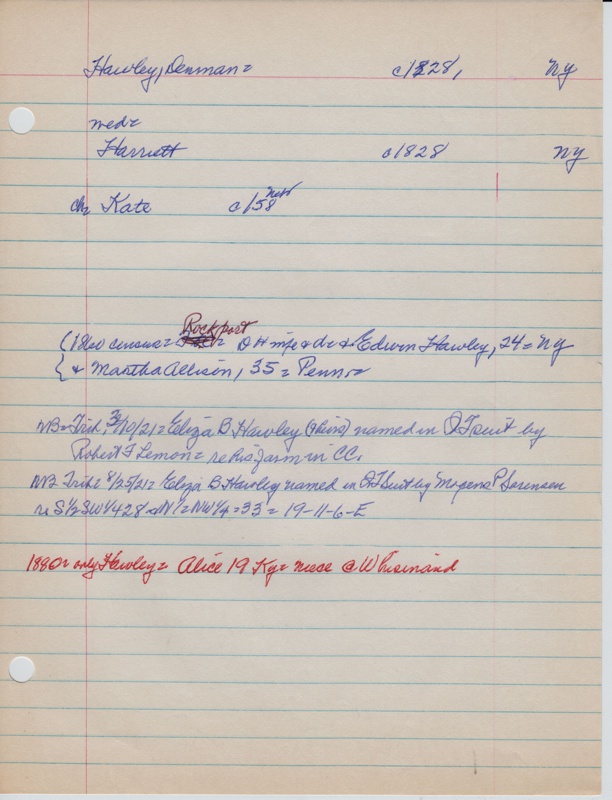 Hawley, Denman = c1828, NY
med =
Harriett c1828 NY
ch = Kate c/58 Nebr
Rockport
(1860 census = = D H wife & d = & Edwin Hawley, 24 = NY
{ & Martha Allison, 35 = Penn =
NB = Trib 3/10/21 = Eliza B Hawley (heirs) named in QT suit by
Robert F Lemon = re his farm in CC.
NB = Trib = 8/25/21 = Eliza B. Hawley named in QT Suit by Mogens P. Sorensen
re S½SW¼28 & N½NW¼ = 33 = 19-11-6-E
1880 = only Hawley = Alice 19 Ky = niece @ Whisinand